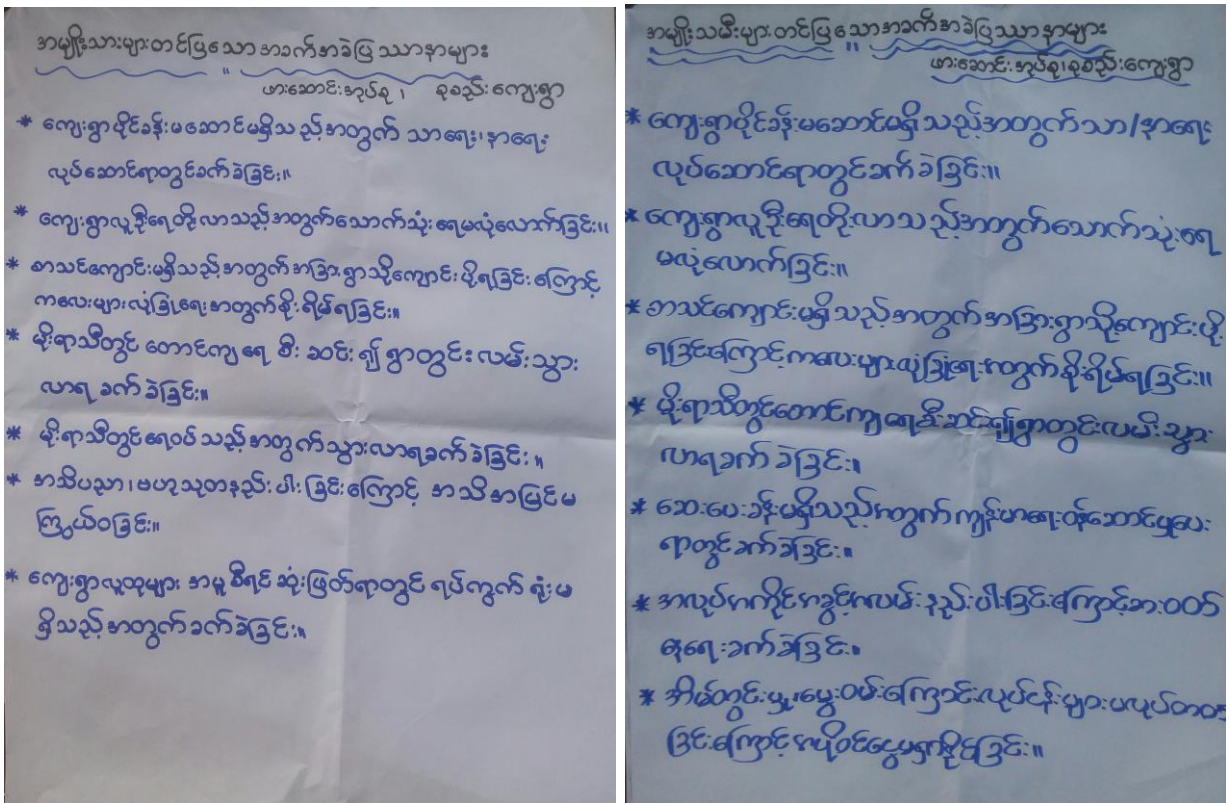 အမျိုးသားများတင်ပြသော အခက်အခဲပြဿနာများ
ဖားဆောင်းအုပ်စု၊ စုစည်းကျေးရွာ
* ကျေးရွာပိုင်ခန်းမဆောင်မရှိသည့်အတွက် သာရေး၊နာရေး
လုပ်ဆောင်ရာတွင်ခက်ခဲခြင်း။
* ကျေးရွာလူဦးရေတိုးလာသည့်အတွက်သောက်သုံးရေမလုံလောက်ခြင်း။
* စာသင်ကျောင်းမရှိသည့်အတွက်အခြားရွာသို့ကျောင်းပို့ရခြင်းကြောင့်
ကလေးများလုံခြုံရေးအတွက်စိုးရိမ်ရခြင်း။
* မိုးရာသီတွင် တောင်ကျရေ စီးဆင်း၍ ရွာတွင်းလမ်းသွား
လာရခက်ခဲခြင်း။
* မိုးရာသီတွင်ရေဝပ်သည့်အတွက်သွားလာရခက်ခဲခြင်း။
* အသိပညာ၊ဗဟုသုတနည်းပါးခြင်းကြောင့် အသိအမြင်မ
ကြွယ်ဝခြင်း။
* ကျေးရွာလူထုများ အမှုစီရင်ဆုံးဖြတ်ရာတွင် ရပ်ကွက်ရုံးမ
ရှိသည့်အတွက်ခက်ခဲခြင်း။
အမျိုးသမီးများတင်ပြသောအခက်အခဲပြဿနာများ
ဖားဆောင်းအုပ်စု၊စုစည်းကျေးရွာ
* ကျေးရွာပိုင်ခန်းမဆောင်မရှိသည့်အတွက်သာ/နာရေး
လုပ်ဆောင်ရာတွင်ခက်ခဲခြင်း။
* ကျေးရွာလူဦးရေတိုးလာသည့်အတွက်သောက်သုံးရေ
မလုံလောက်ခြင်း။
* စာသင်ကျောင်းမရှိသည့်အတွက်အခြားရွာသို့ကျောင်းပို့
ရခြင်းကြောင့်ကလေးများလုံခြုံရေးအတွက်စိုးရိမ်ရခြင်း။
* မိုးရာသီတွင်တောင်ကျရေစီးဆင်း၍ရွာတွင်းလမ်းသွား
လာရခက်ခဲခြင်း။
* ဆေးပေးခန်းမရှိသည့်အတွက်ကျန်းမာရေးဝန်ဆောင်မှုပေး
ရာတွင်ခက်ခဲခြင်း။
* အလုပ်အကိုင်အခွင့်အလမ်းနည်းပါးခြင်းကြောင့်စားဝတ်
နေရေးခက်ခဲခြင်း။
* အိမ်တွင်းမှုမွေးဝမ်းကြောင်းလုပ်ငန်းများမလုပ်တတ်
ခြင်းကြောင့်အပိုဝင်ငွေမရှာနိုင်ခြင်း။